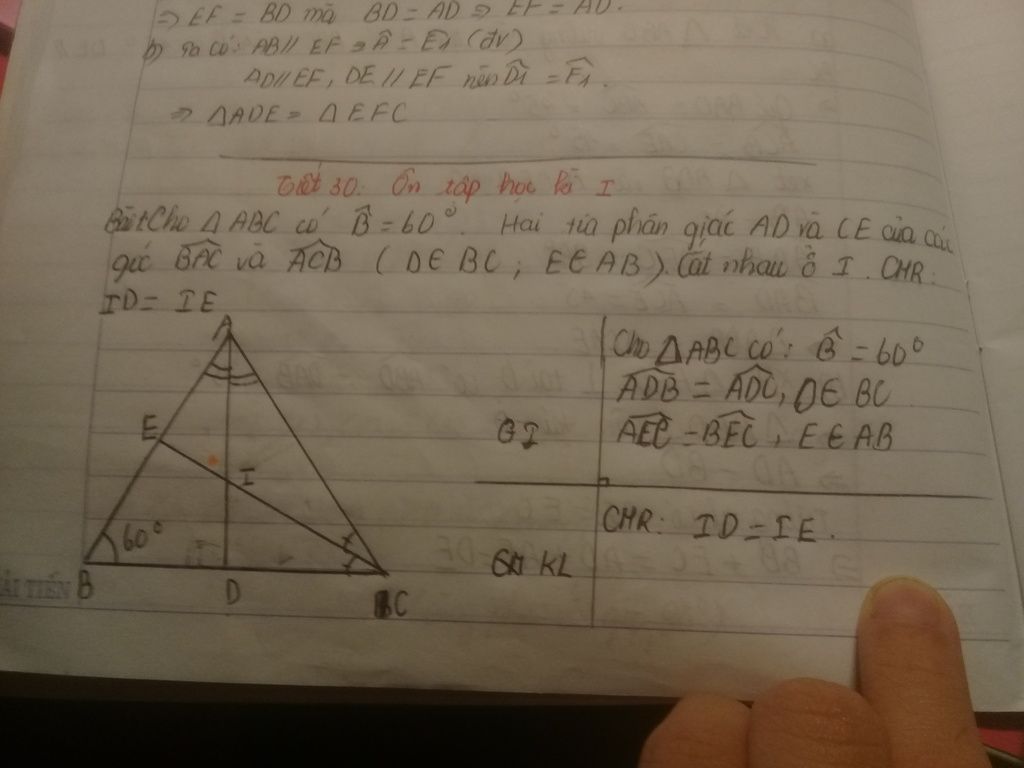 ⇒ EF = BD mà BD = AD ⇒ EF = AD.
b) Ta có: AB // EF ⇒ Â = Ê1 (đv)
AD // EF, DE // EF nên D̂1 = F̂1.
⇒ ΔADE = ΔEFC
Tiết 30: Ôn tập học kì I
Bài 1: Cho Δ ABC có B̂ = 60°. Hai tia phân giác AD và CE của các
góc BAC và ACB (D∈ BC; E∈ AB). Cắt nhau ở I. CMR:
ID = IE
A
E
I
60°
B
D
C
GT
Cho ΔABC có: B̂ = 60°
ADB = ADC, D∈ BC
AEC = BEC, E∈ AB
KL
CMR: ID = IE.